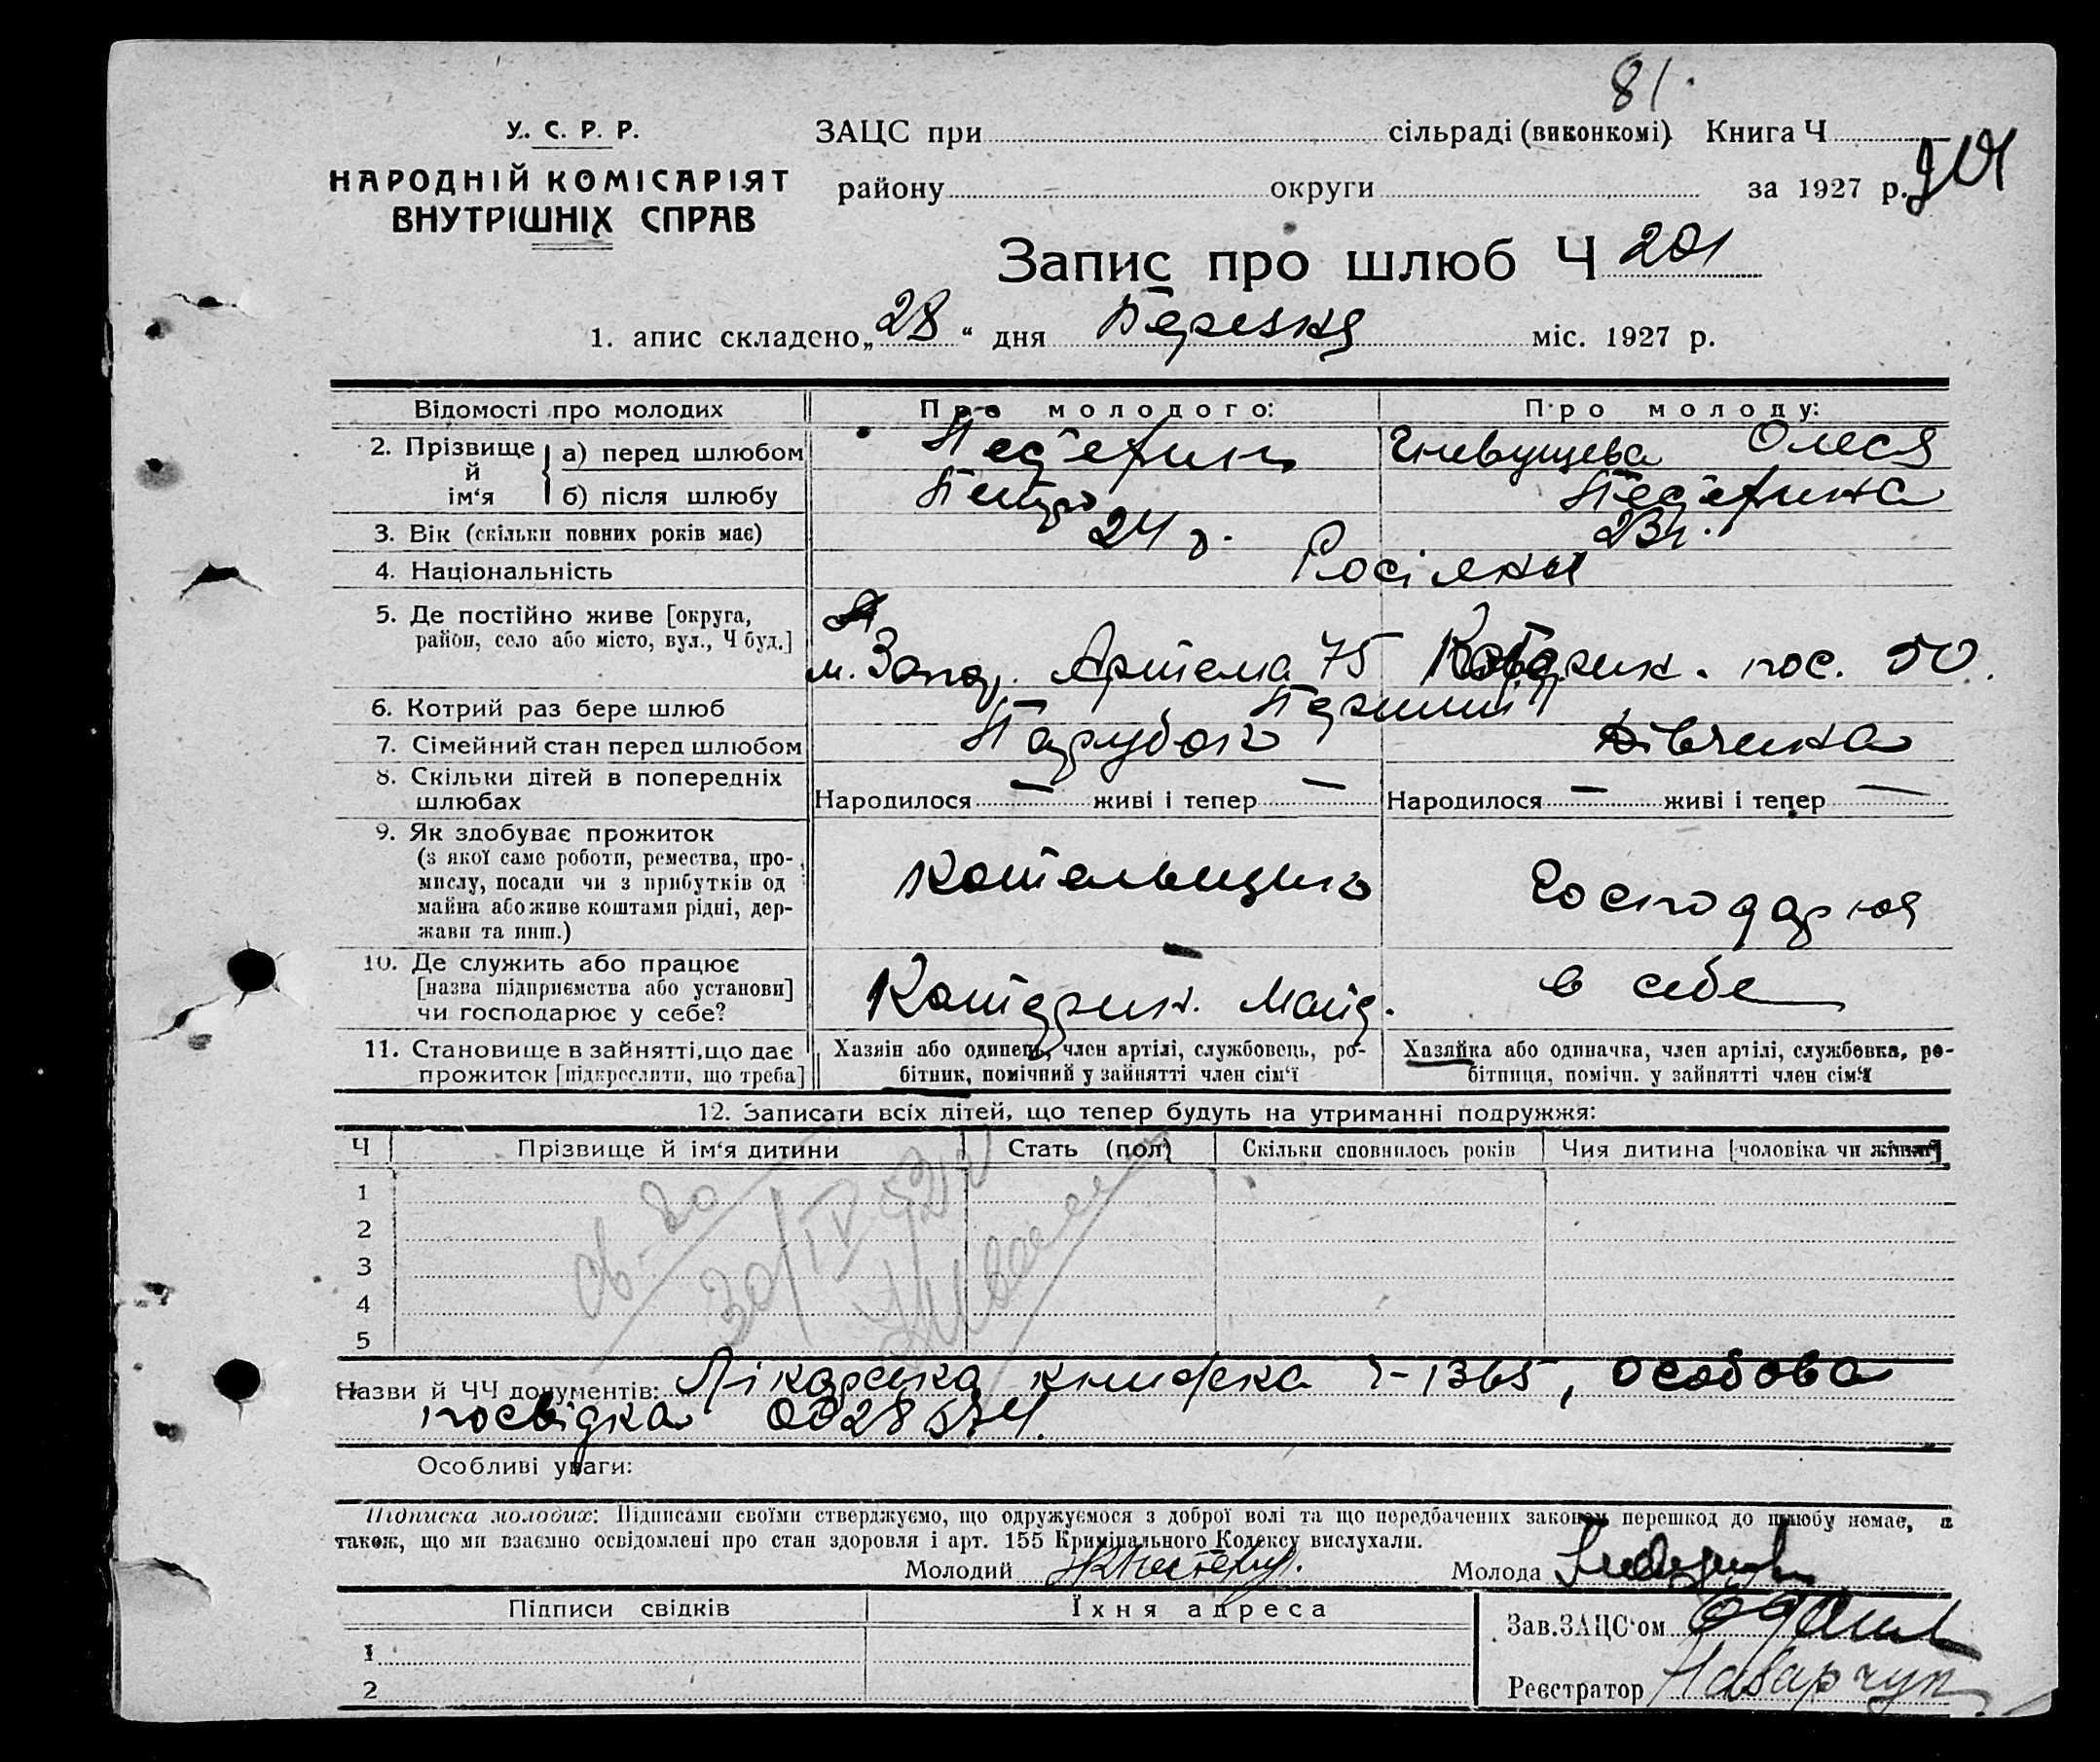 81.
У. С. Р. Р.
НАРОДНІЙ КОМІСАРІЯТ
ВНУТРІШНІХ СПРАВ
ЗАЦС при сільраді (виконкомі) Книга Ч
району округи за 1927 р.
Запис про шлюб Ч 201
1. апис складено „28“ дня Березня міс. 1927 р.
Відомості про молодих Про молодого: Про молоду:
2. Прізвище й ім‘я
а) перед шлюбом Гневущева Олеся
б) після шлюбу Петро
3. Вік (скільки повних років має) 24 р. 23 р.
4. Національність Росіяни
5. Де постійно живе [округа, район, село або місто, вул., Ч буд.]
м. Запор. Артема 75 пос. 50.
6. Котрий раз бере шлюб Перший
7. Сімейний стан перед шлюбом Парубок Дівчина
8. Скільки дітей в попередніх шлюбах
Народилося — живі і тепер — Народилося — живі і тепер —
9. Як здобуває прожиток
(з якої саме роботи, ремества, про-
мислу, посади чи з прибутків од
майна або живе коштами рідні, дер-
жави та инш.)
котельщик Господарює
10. Де служить або працює
[назва підприємства або установи]
чи господарює у себе?
Катерин. Майс. в себе
11. Становище в зайнятті, що дає
прожиток [підкреслити, що треба]
Хазяїн або одинець, член артілі, службовець, ро-
бітник, помічний у зайнятті член сім‘ї
Хазяйка або одиначка, член артілі, службовка, ро-
бітниця, помічн. у зайнятті член сім‘ї
12. Записати всіх дітей, що тепер будуть на утриманні подружжя:
Ч Прізвище й ім‘я дитини Стать (пол) Скільки сповнилось років Чия дитина [чоловіка чи жінки]
1
2
3
4
5
30/IV
Назви й ЧЧ документів: Лікарська книжка Ч-1365, особова
посвідка
Особливі уваги:
Підписка молодих: Підписами своїми стверджуємо, що одружуємося з доброї волі та що передбачених законом перешкод до шлюбу немає, а
також, що ми взаємно освідомлені про стан здоровля і арт. 155 Кримінального Кодексу вислухали.
Молодий Молода
Підписи свідків Їхня адреса
1
2
Зав. ЗАЦС‘ом
Реєстратор Назарчук